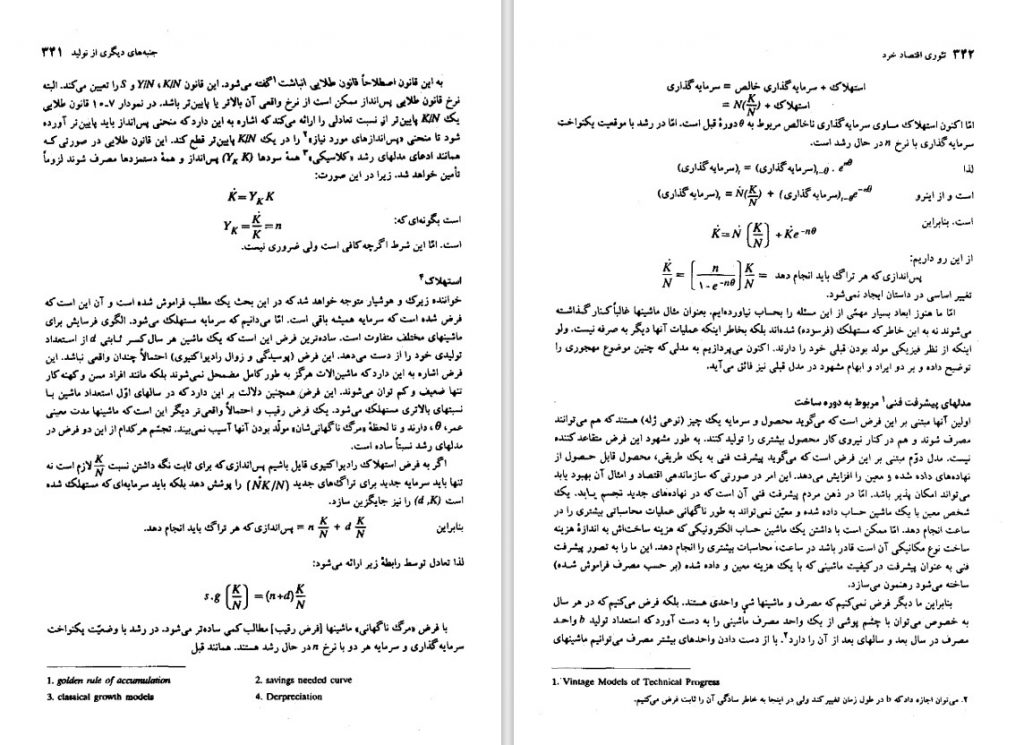 جنبه‌های دیگری از تولید ۳۴۱
به این قانون اصطلاحاً قانون طلایی انباشت¹ گفته می‌شود. این قانون K/N، Y/N و S را تعیین می‌کند. البته
نرخ قانون طلایی پس‌انداز ممکن است از نرخ واقعی آن بالاتر یا پایین‌تر باشد. در نمودار ۷-۱۰ قانون طلایی
یک K/N پایین‌تر از نسبت تعادلی را ارائه می‌کند که اشاره به این دارد که منحنی پس‌انداز باید پایین‌تر آورده
شود تا منحنی «پس‌اندازهای مورد نیاز»² را در یک K/N پایین‌تر قطع کند. این قانون طلایی در صورتی که
همانند ادعای مدلهای رشد «کلاسیکی»³ همهٔ سودها (Y_K K) پس‌انداز و همهٔ دستمزدها مصرف شوند لزوماً
تأمین خواهد شد. زیرا در این صورت:
K̇ = Y_K K
است بگونه‌ای که: Y_K = K̇/K = n
است. امّا این شرط اگرچه کافی است ولی ضروری نیست.
استهلاک⁴
خواننده زیرک و هوشیار متوجه خواهد شد که در این بحث یک مطلب فراموش شده است و آن این است که
فرض شده است که سرمایه همیشه باقی است. امّا می‌دانیم که سرمایه مستهلک می‌شود. الگوی فرسایش برای
ماشینهای مختلف متفاوت است. ساده‌ترین فرض این است که یک ماشین هر سال کسر ثابتی d از استعداد
تولیدی خود را از دست می‌دهد. این فرض (پوسیدگی و زوال رادیواکتیوی) احتمالاً چندان واقعی نباشد. این
فرض اشاره به این دارد که ماشین‌آلات هرگز به طور کامل مضمحل نمی‌شوند بلکه مانند افراد مسن و کهنه کار
تنها ضعیف و کم توان می‌شوند. این فرض همچنین دلالت بر این دارد که در سالهای اوّل استعداد ماشین با
نسبتهای بالاتری مستهلک می‌شود. یک فرض رقیب و احتمالاً واقعی‌تر دیگر این است که ماشینها مدت معینی
عمر، θ، دارند و تا لحظهٔ «مرگ ناگهانی‌شان» مولّد بودن آنها آسیب نمی‌بیند. تجسّم هرکدام از این دو فرض در
مدلهای رشد نسبتاً ساده است.
اگر به فرض استهلاک رادیواکتیوی قایل باشیم پس‌اندازی که برای ثابت نگه داشتن نسبت K/N لازم است نه
تنها باید سرمایه جدید برای تراگ‌های جدید (ṄK/N) را پوشش دهد بلکه باید سرمایه‌ای که مستهلک شده
است (d,K) را نیز جایگزین سازد.
بنابراین پس‌اندازی که هر تراگ باید انجام دهد. = n K/N + d K/N
لذا تعادل توسط رابطهٔ زیر ارائه می‌شود:
s.g (K/N) = (n+d) K/N
با فرض «مرگ ناگهانی» ماشینها [فرض رقیب] مطالب کمی ساده‌تر می‌شود. در رشد با وضعیّت یکنواخت
سرمایه‌گذاری و سرمایه هر دو با نرخ n در حال رشد هستند. همانند قبل
1. golden rule of accumulation 2. savings needed curve
3. classical growth models 4. Derpreciation
۳۴۲ تئوری اقتصاد خرد
استهلاک + سرمایه‌گذاری خالص = سرمایه‌گذاری
استهلاک + Ṅ(K/N) =
امّا اکنون استهلاک مساوی سرمایه‌گذاری ناخالص مربوط به θ دورهٔ قبل است. امّا در رشد با موقعیت یکنواخت
سرمایه‌گذاری با نرخ n در حال رشد است.
لذا (سرمایه‌گذاری)_t = (سرمایه‌گذاری)_{t-θ} . e^{nθ}
است و از اینرو (سرمایه‌گذاری)_t = Ṅ(K/N) + (سرمایه‌گذاری) e^{-nθ}
است. بنابراین K̇ = Ṅ (K/N) + K̇e^{-nθ}
از این رو داریم:
پس‌اندازی که هر تراگ باید انجام دهد = K̇/N = [n/(1-e^{-nθ})] K/N
تغییر اساسی در داستان ایجاد نمی‌شود.
امّا ما هنوز ابعاد بسیار مهمّی از این مسئله را بحساب نیاورده‌ایم. بعنوان مثال ماشینها غالباً کنار گذاشته
می‌شوند نه به این خاطر که مستهلک (فرسوده) شده‌اند بلکه بخاطر اینکه عملیات آنها دیگر به صرفه نیست. ولو
اینکه از نظر فیزیکی مولد بودن قبلی خود را دارند. اکنون می‌پردازیم به مدلی که چنین موضوع مهجوری را
توضیح داده و بر دو ایراد و ابهام مشهود در مدل قبلی نیز فائق می‌آید.
مدلهای پیشرفت فنی¹ مربوط به دوره ساخت
اولین آنها مبتنی بر این فرض است که می‌گوید محصول و سرمایه یک چیز (نوعی ژله) هستند که هم می‌توانند
مصرف شوند و هم در کنار نیروی کار محصول بیشتری را تولید کنند. به طور مشهود این فرض متقاعد کننده
نیست. مدل دوّم مبتنی بر این فرض است که می‌گوید پیشرفت فنی به یک طریقی، محصول قابل حصول از
نهاده‌های داده شده و معین را افزایش می‌دهد. این امر در صورتی که سازماندهی اقتصاد و امثال آن بهبود یابد
می‌تواند امکان پذیر باشد. امّا در ذهن مردم پیشرفت فنی آن است که در نهاده‌های جدید تجسم یابد. یک
شخص معین با یک ماشین حساب داده شده و معیّن نمی‌تواند به طور ناگهانی عملیات محاسباتی بیشتری را در
ساعت انجام دهد. امّا ممکن است با داشتن یک ماشین حساب الکترونیکی که هزینه ساخت‌اش به اندازهٔ هزینه
ساخت نوع مکانیکی آن است قادر باشد در ساعت، محاسبات بیشتری را انجام دهد. این ما را به تصور پیشرفت
فنی به عنوان پیشرفت در کیفیت ماشینی که با یک هزینه معین و داده شده (بر حسب مصرف فراموش شده)
ساخته می‌شود رهنمون می‌سازد.
بنابراین ما دیگر فرض نمی‌کنیم که مصرف و ماشینها شیِ واحدی هستند. بلکه فرض می‌کنیم که در هر سال
به خصوص می‌توان با چشم پوشی از یک واحد مصرف ماشینی را به دست آورد که استعداد تولید b واحد
مصرف در سال بعد و سالهای بعد از آن را دارد². با از دست دادن واحدهای بیشتر مصرف می‌توانیم ماشینهای
1. Vintage Models of Technical Progress
۲. می‌توان اجازه داد که b در طول زمان تغییر کند ولی در اینجا به خاطر سادگی آن را ثابت فرض می‌کنیم.